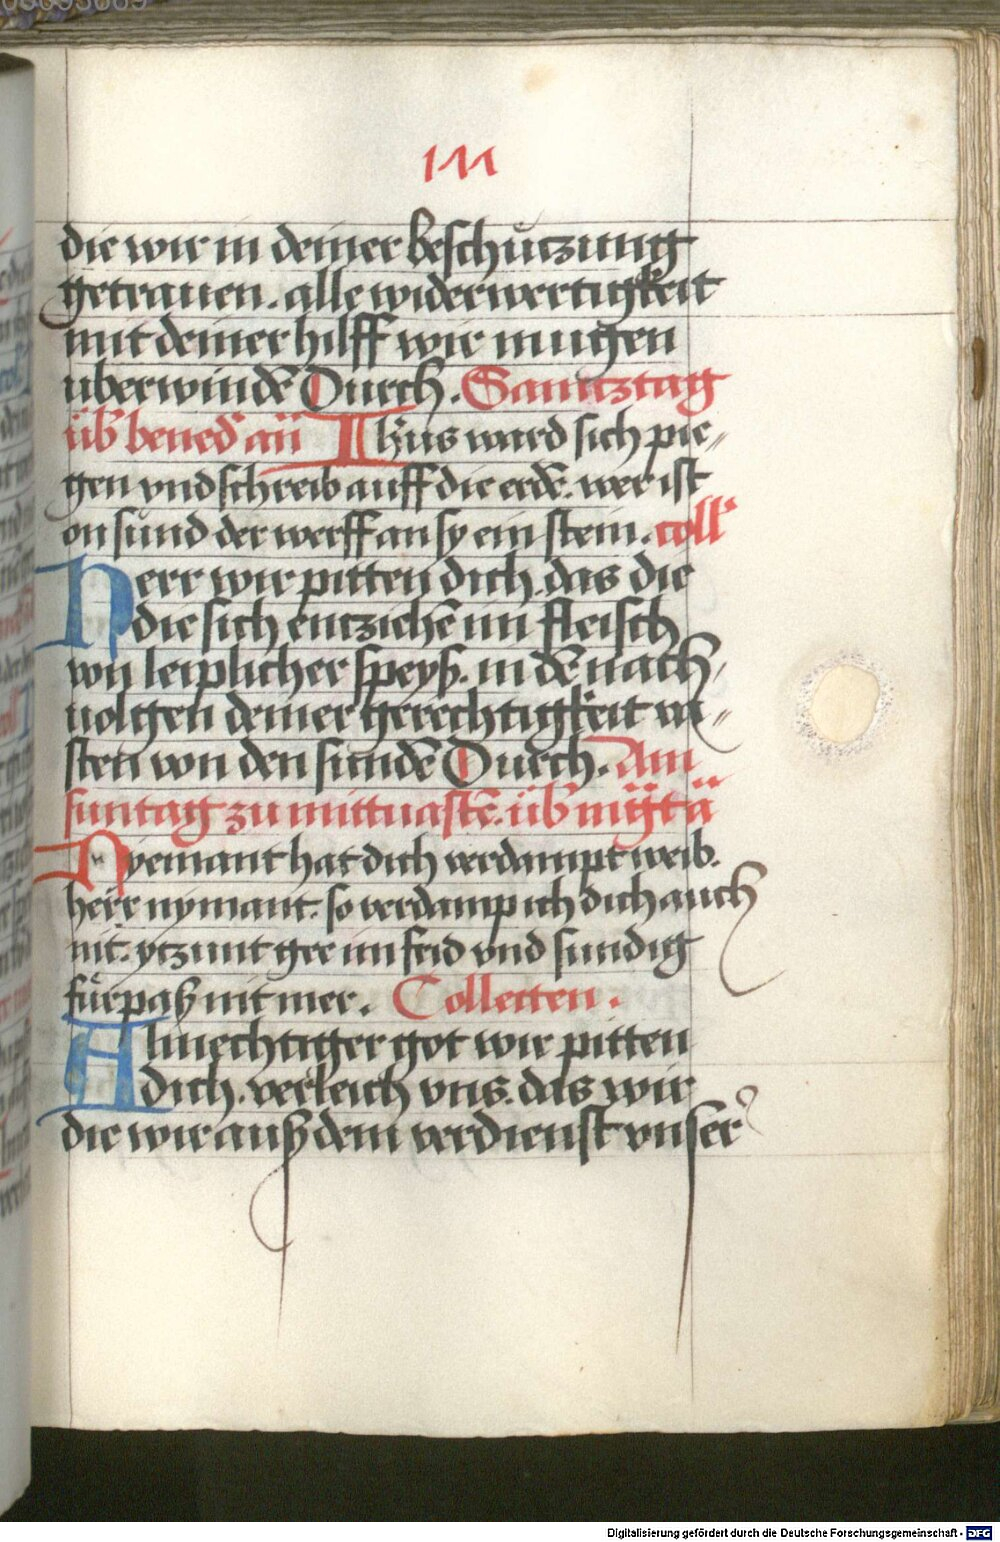 die wir in deiner beschützung
getrauen. alle widerwertigkeit
mit deiner hilff wir mugen
uberwindē Durch. Samtztag
üb̄ bened̄ añ Ih̄us ward sich pie⸗
gen vnd schreib auff die erdē. wer ist
on sünd der werff an sy ein stein. coll̄
Herr wir pitten dich. das die
die sich entziehē im fleisch
von leiplicher speyß. in dē nach⸗
uolgen deiner gerechtigkeit va⸗
sten von den sundē Durch. Am
suntag zu mittuastē. üb̄
Nyemant hat dich verdampt weib.
herr nymant. so verdamp ich dich auch
nit. ytzunt gee im frid vnd sundig
fürpaß nit mer. Collecten.
Almechtiger got wir pitten
dich. verleich vns. das wir
die wir auß dem verdienst vnser
Digitalisierung gefördert durch die Deutsche Forschungsgemeinschaft - DFG